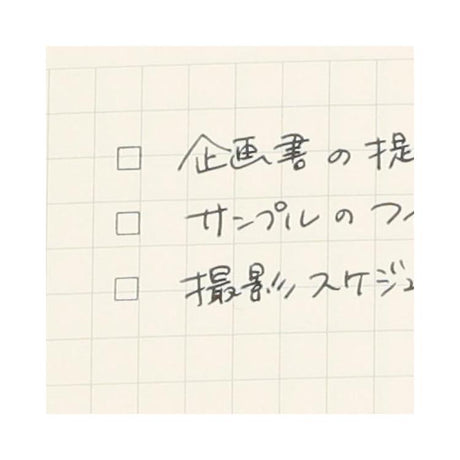 □ 企画書の提
□ サンプルのフ
□ 撮影スケジュ